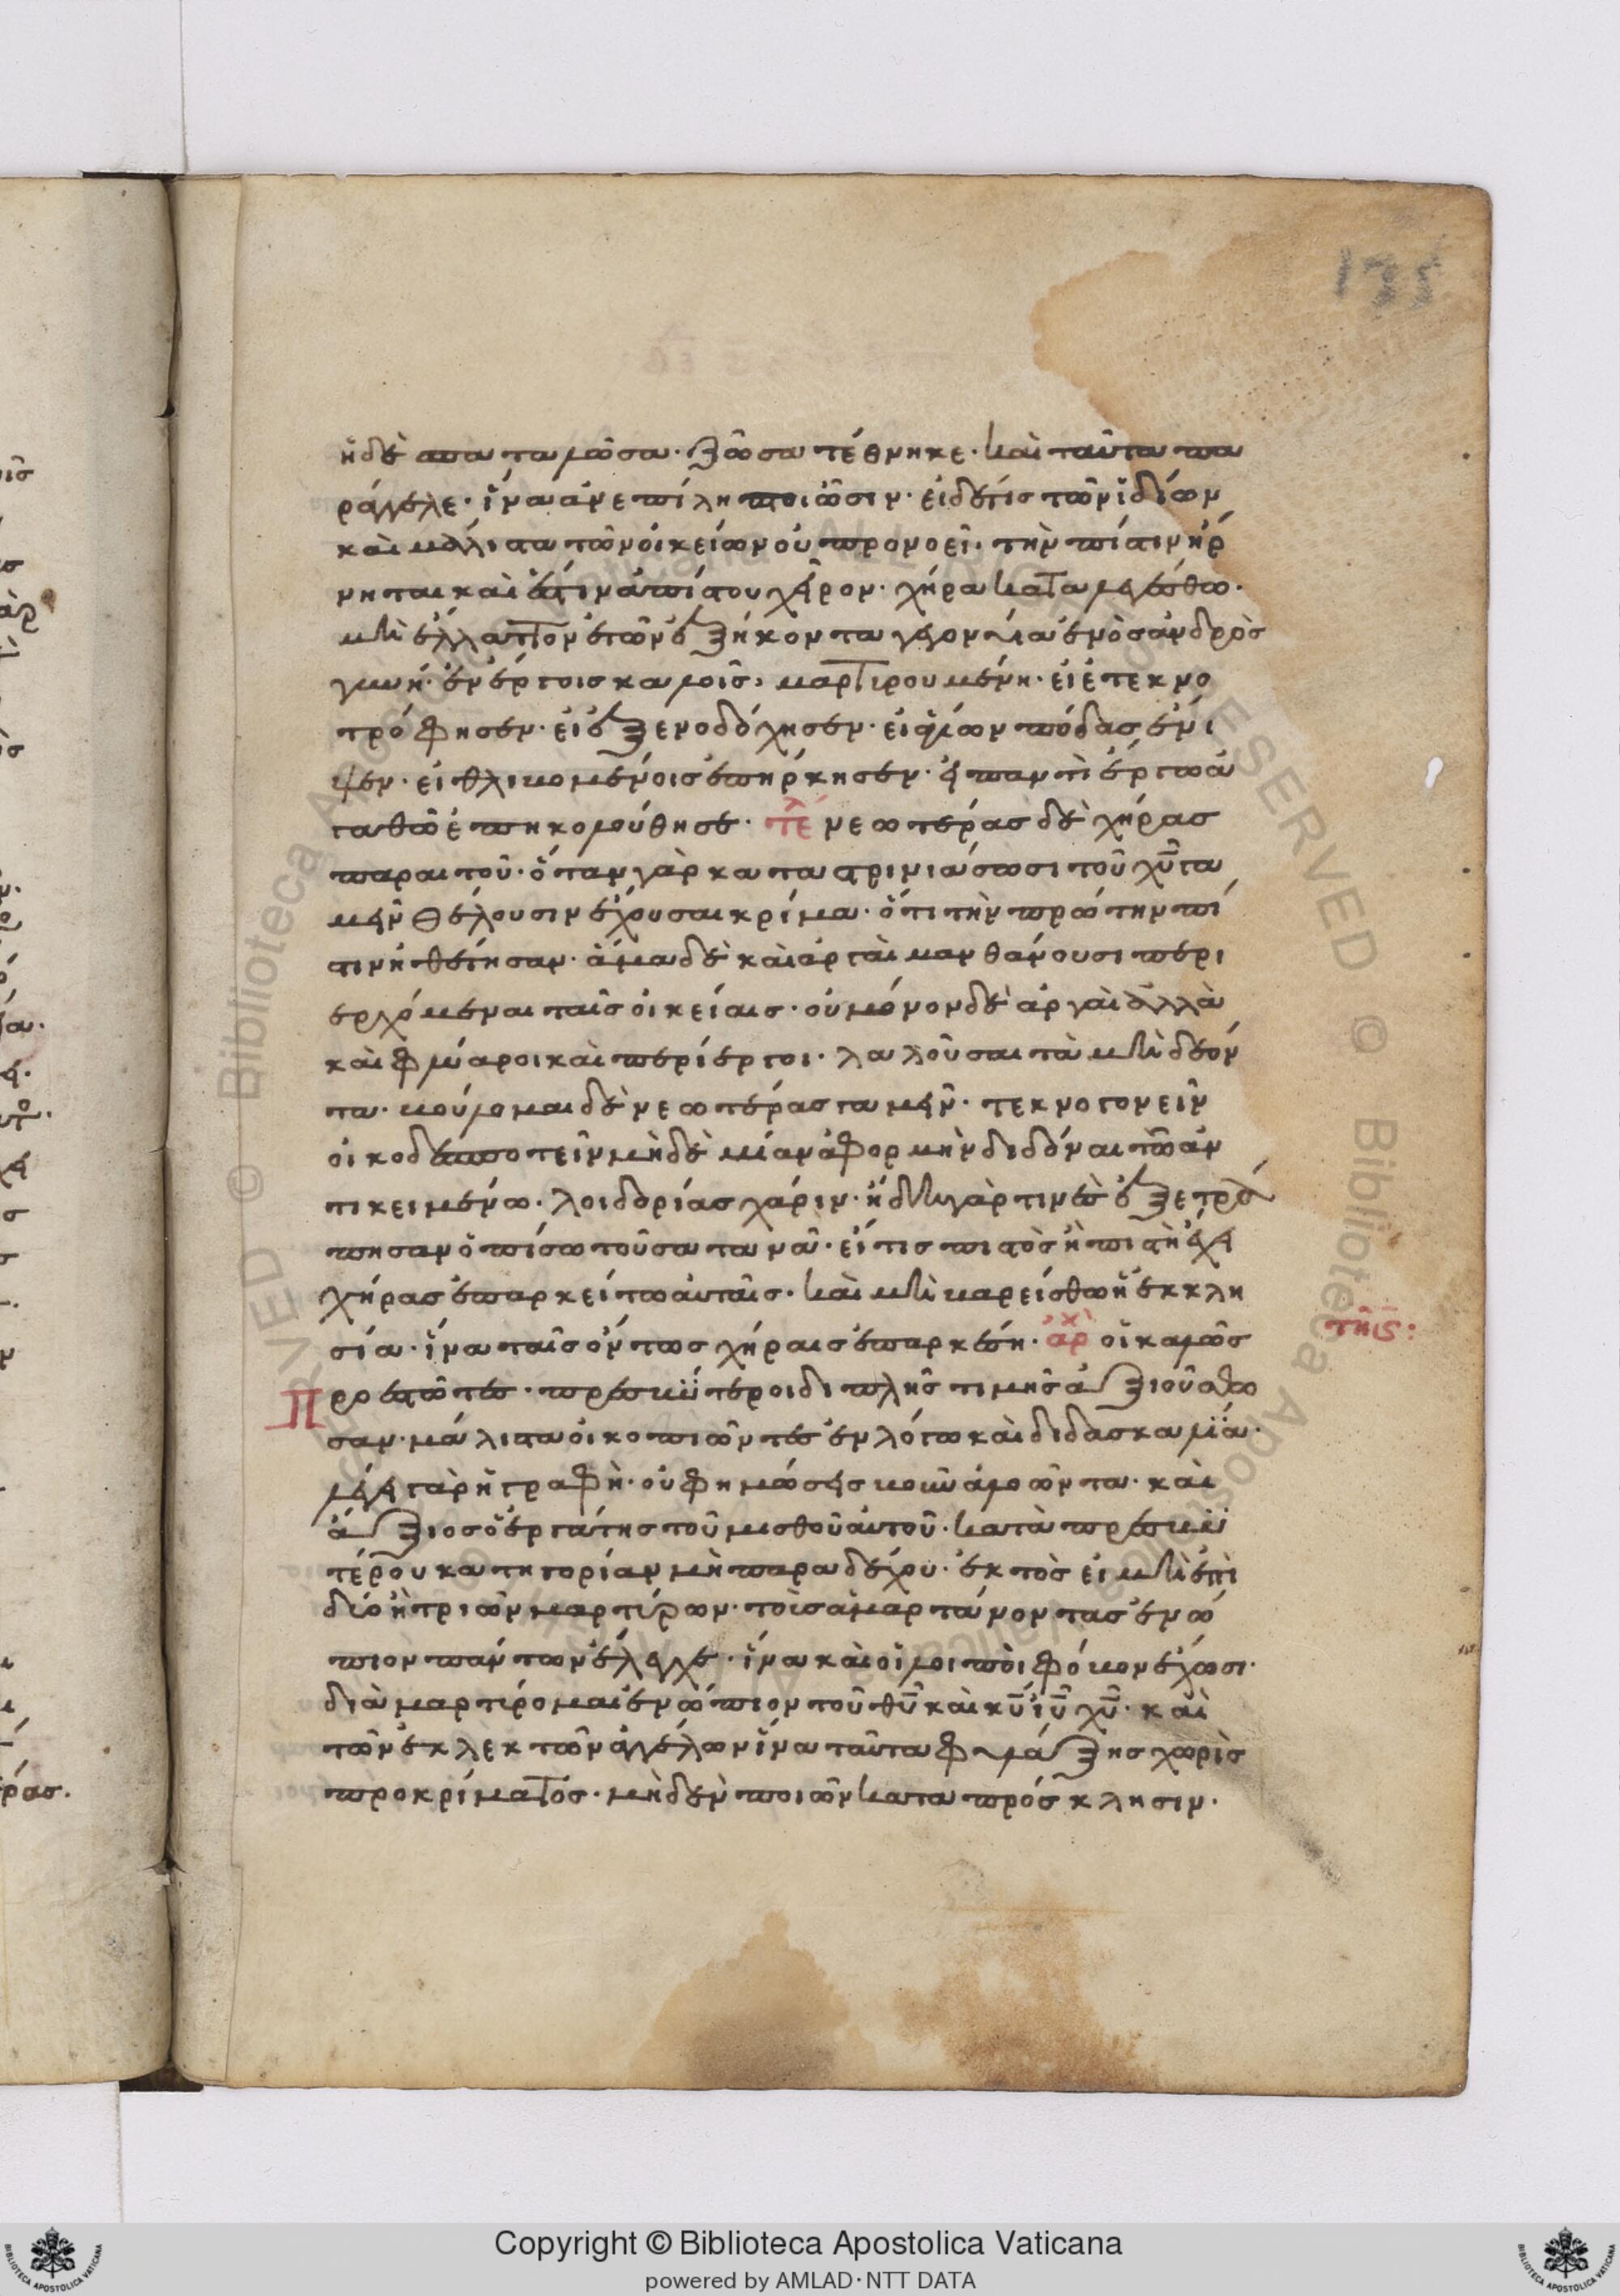 ἡ δὲ σπαταλῶσα· ζῶσα τέθνηκε· καὶ ταῦτα πα
ράγγελε· ἵνα ἀνεπίληπτοι ὦσιν· εἰ δέ τις τῶν ἰδίων
καὶ μάλιστα τῶν οἰκείων οὐ προνοεῖ· τὴν πίστιν ἤρ
νηται καὶ ἔστιν ἀπίστου χεῖρον· χήρα καταλεγέσθω·
μὴ ἔλλαττον ἐτῶν ἑξήκοντα γεγονυῖα ἑνὸς ἀνδρὸς
γυνή· ἐν ἔργοις καλοῖς, μαρτιρουμένη· εἰ ἐτεκνο
τρόφησεν· εἰ ἐξενοδόχησεν· εἰ ἁγίων πόδας ἔνι
ψεν· εἰ θλιβομένοις ἐπήρκησεν· εἰ παντὶ ἔργω ἀ
γαθῶ ἐπηκολούθησε· τε^λ νεωτέρας δὲ χήρας
παραιτοῦ· ὅταν γὰρ καταστρινιάσωσι τοῦ χῦ γα
μεῖν θέλουσιν ἔχουσαι κρίμα· ὅτι τὴν πρώτην πί
στιν ἠθέτησαν· ἅμα δὲ καὶ ἀργαὶ μανθάνουσι περι
ερχόμεναι ταῖς οἰκείαις· οὐ μόνον δὲ ἀργαὶ ἀλλὰ
καὶ φλύαροι καὶ περίεργοι· λαλοῦσαι τὰ μὴ δέον
τα· βούλομαι δὲ νεωτέρας γαμεῖν· τεκνογονεῖν
οἰκοδεσποτεῖν μὴδὲ μίαν ἀφορμὴν διδόναι τῶ ἀν
τικειμένω· λοιδορίας χάριν· ἤδη γάρ τινες ἐξετρά
πησαν ὀπίσω τοῦ σατανᾶ· εἴ τις πιστὸς ἢ πιστὴ ἔχει
χήρας ἐπαρκείτω αὐταῖς· καὶ μὴ βαρείσθω ἡ ἐκκλη
σία· ἵνα ταῖς ὄντως χήραις ἐπαρκέση· ἀρ^χ οἱ καλῶς
τῆι ς:
Προεστῶτες· πρεσβϋτέροι διπλῆς τιμῆς ἀξιούσθω
σαν· μάλιστα οἱ κοπιῶντες ἐν λόγω καὶ διδασκαλΐα·
λέγει γὰρ ἡ γραφὴ· οὐ φημώσεις βοῦν ἀλοῶντα· καὶ
ἄξιος ὁ ἐργάτης τοῦ μισθοῦ αὐτοῦ· κατὰ πρεσβϋ
τέρου κατηγορίαν μὴ παραδέχου· ἐκτὸς εἰ μὴ ἐπὶ
δύο ἢ τριῶν μαρτύρων· τοὺς ἁμαρτάνοντας ἐνώ
πιον πάντων ἔλεγχε· ἵνα καὶ οἱ λοιποὶ φόβον ἔχωσι·
διὰ μαρτίρομαι ἐνώπιον τοῦ θῦ καὶ κῦ ἰῦ χῦ· καὶ
τῶν ἐκλεκτῶν ἀγγέλων ἵνα ταῦτα φυλάξης χωρὶς
προκρίματος· μὴδὲν ποιῶν κατὰ πρόσκλησιν·
Copyright © Biblioteca Apostolica Vaticana
powered by AMLAD·NTT DATA